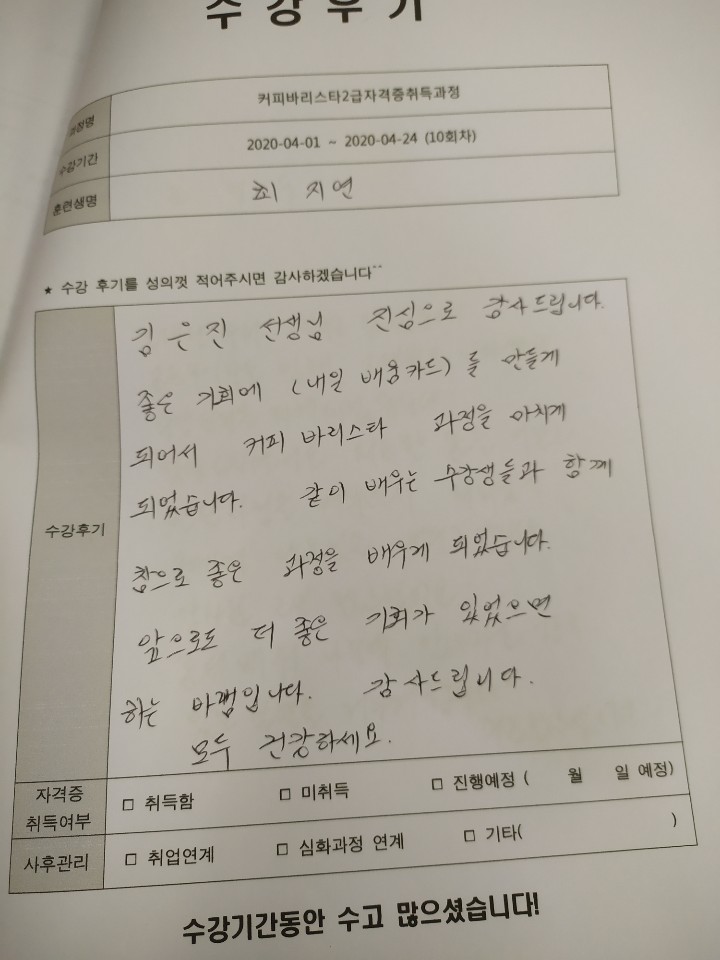 수강후기
과정명 커피바리스타2급자격증취득과정
수강기간 2020-04-01 ~ 2020-04-24 (10회차)
훈련생명 최 지연
★ 수강 후기를 성의껏 적어주시면 감사하겠습니다^^
수강후기
김은진 선생님 진심으로 감사드립니다.
좋은 기회에 (내일 배움카드)를 만들게
되어서 커피 바리스타 과정을 마치게
되었습니다. 같이 배우는 수강생들과 함께
참으로 좋은 과정을 배우게 되었습니다.
앞으로도 더 좋은 기회가 있었으면
하는 바램입니다. 감사드립니다.
모두 건강하세요.
자격증 취득여부 □ 취득함 □ 미취득 □ 진행예정 ( 월 일 예정)
사후관리 □ 취업연계 □ 심화과정 연계 □ 기타( )
수강기간동안 수고 많으셨습니다!